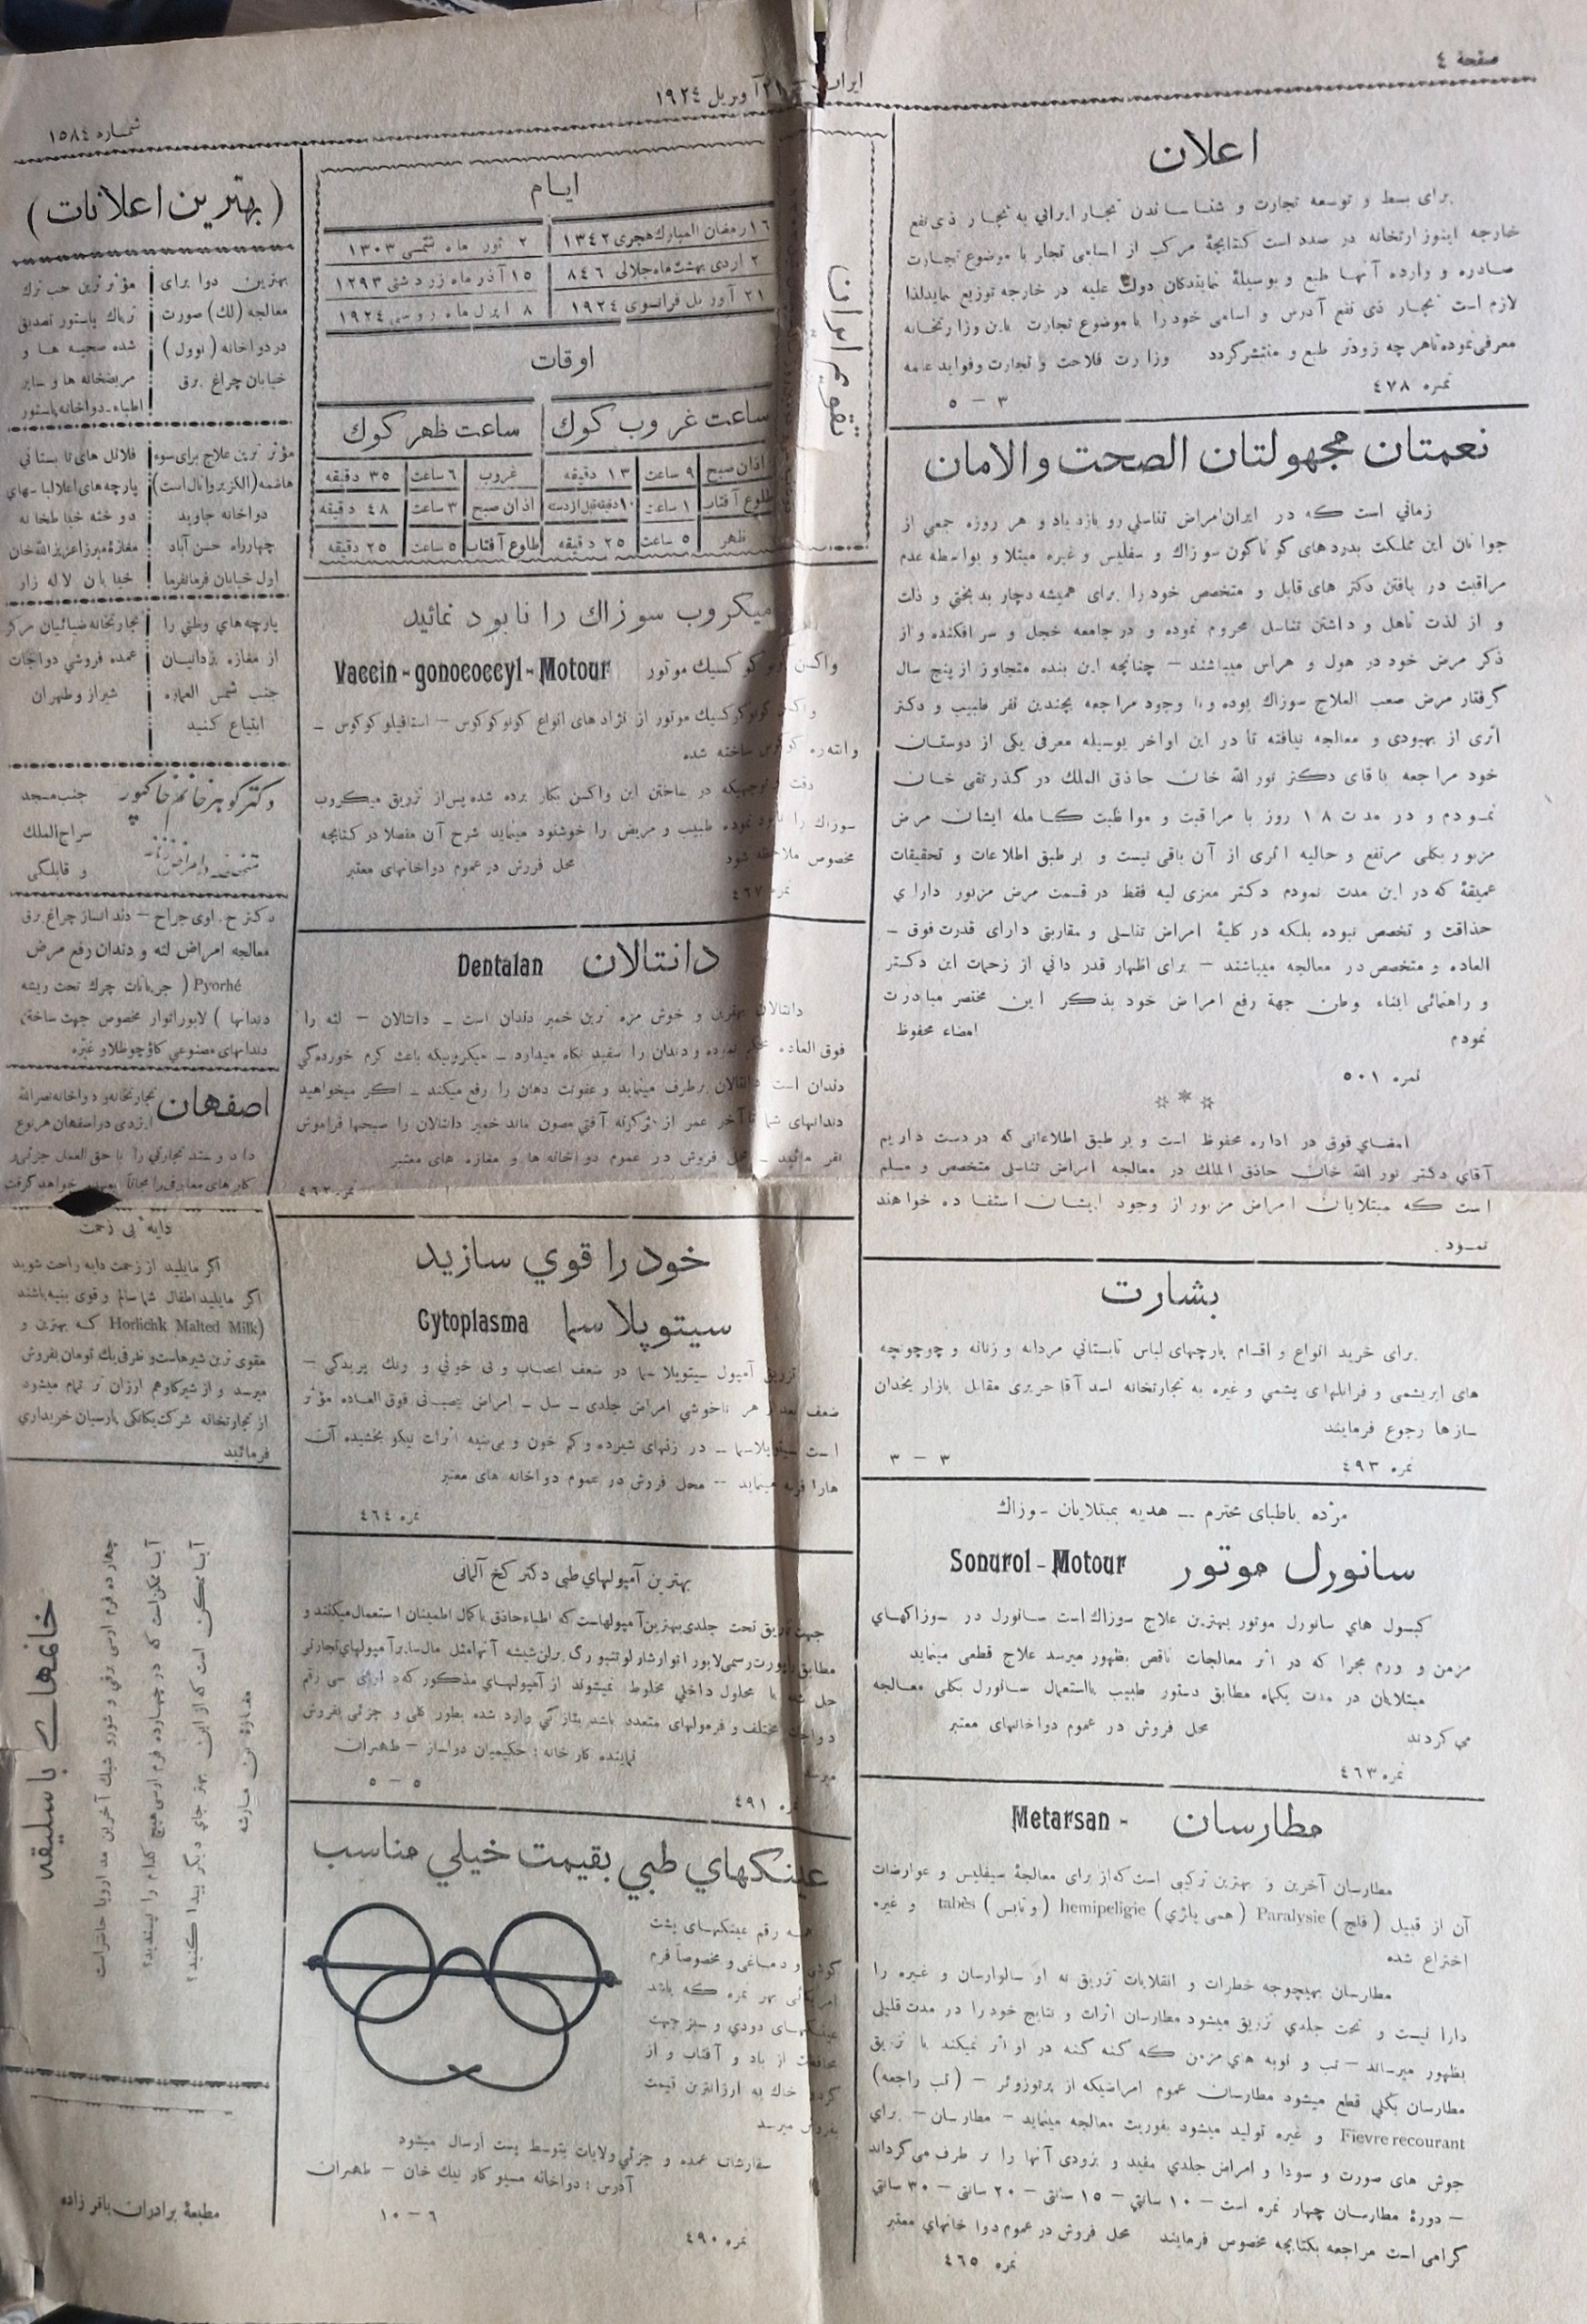 صفحة ٤
ایران
٢١ آوریل ١٩٢٤
شماره ١٥٨٤
اعلان
برای بسط و توسعه تجارت و شناساندن تجار ایرانی به تجار ذی نفع
خارجه اینوزارتخانه در صدد است کتابچۀ مرکب از اسامی تجار با موضوع تجارت
صادره و وارده آنها طبع و بوسیلۀ نمایندگان دولت علیه در خارجه توزیع نمایدلذا
لازم است تجار ذی نفع آدرس و اسامی خود را با موضوع تجارت باین وزارتخانه
معرفی نموده تاهرچه زودتر طبع و منتشر گردد وزارت فلاحت و تجارت و فواید عامه
نمره ٤٧٨
٣ – ٥
نعمتان مجهولتان الصحت والامان
زمانی است که در ایران امراض تناسلی رو بازدیاد و هر روزه جمعی از
جوانان این مملکت بدردهای گوناگون سوزاك و سفلیس و غیره مبتلا و بواسطه عدم
مراقبت در یافتن دکتر های قابل و متخصص خود را برای همیشه دچار بدبختی و ذلت
و از لذت تاهل و داشتن تناسل محروم نموده و در جامعه خجل و سر افکنده و از
ذکر مرض خود در هول و هراس میباشند – چنانچه این بنده متجاوز از پنج سال
گرفتار مرض صعب العلاج سوزاك بوده و با وجود مراجعه بچندین نفر طبیب و دکتر
اثری از بهبودی و معالجه نیافته تا در این اواخر بوسیله معرفی یکی از دوستان
خود مراجعه باقای دکتر نور الله خان حاذق الملك در گذر تقی خان
نمودم و در مدت ١٨ روز با مراقبت و مواظبت کامله ایشان مرض
مزبور بکلی مرتفع و حالیه اثری از آن باقی نیست و بر طبق اطلاعات و تحقیقات
عمیقۀ که در این مدت نمودم دکتر معزی الیه فقط در قسمت مرض مزبور دارای
حذاقت و تخصص نبوده بلکه در کلیۀ امراض تناسلی و مقاربتی دارای قدرت فوق –
العاده و متخصص در معالجه میباشند – برای اظهار قدر دانی از زحمات این دکتر
و راهنمائی ابناء وطن جهة رفع امراض خود بذکر این مختصر مبادرت
نمودم
امضاء محفوظ
نمره ٥٠١
* * *
امضای فوق در اداره محفوظ است و بر طبق اطلاعاتی که در دست داریم
آقای دکتر نور الله خان حاذق الملك در معالجه امراض تناسلی متخصص و مسلم
است که مبتلایان امراض مزبور از وجود ایشان استفاده خواهند
نمود.
بشارت
برای خرید انواع و اقسام پارچهای لباس تابستانی مردانه و زنانه و چوچونچه
های ابریشمی و فرانلهای پشمی و غیره به تجارتخانه اسد آقا حریری مقابل بازار یخدان
سازها رجوع فرمایند
نمره ٤٩٣
٣ – ٣
مژده باطبای محترم – هدیه بمبتلایان سوزاك
سانورل موتور Sonurol - Motour
کپسول های سانورل موتور بهترین علاج سوزاك است سانورل در سوزاکهای
مزمن و ورم مجرا که در اثر معالجات ناقص بظهور میرسد علاج قطعی مینماید
مبتلایان در مدت یکماه مطابق دستور طبیب بااستعمال سانورل بکلی معالجه
می کردند
محل فروش در عموم دواخانهای معتبر
نمره ٤٦٣
مطارسان - Metarsan
مطارسان آخرین و بهترین ترکیبی است که از برای معالجۀ سیفلیس و عوارضات
آن از قبیل (فلج) Paralysie (همی پلژی) hemipeligie (و تابس) tabès و غیره
اختراع شده
مطارسان بهیچوجه خطرات و انقلابات تزریق نه او سالوارسان و غیره را
دارا نیست و تحت جلدی تزریق میشود مطارسان اثرات و نتایج خود را در مدت قلیلی
بظهور میرساند – تب و نوبه های مزمن که گنه گنه در او اثر نمیکند با تزریق
مطارسان بکلی قطع میشود مطارسان عموم امراضیکه از پرتوزوئر – (تب راجعه)
Fievre recourant و غیره تولید میشود بفوریت معالجه مینماید – مطارسان – برای
جوش های صورت و سودا و امراض جلدی مفید و بزودی آنها را بر طرف می گرداند
– دورۀ مطارسان چهار نمره است – ١٠ سانتی – ١٥ سانتی – ٢٠ سانتی – ٣٠ سانتی
گرامی است مراجعه بکتابچه مخصوص فرمایند محل فروش در عموم دوا خانهای معتبر
نمره ٤٦٥
تقویم ایران
ایام
١٦ رمضان المبارك هجری ١٣٤٢
٢ ثور ماه شمسی ١٣٠٣
٢ اردی بهشت ماه جلالی ٨٤٦
١٥ آذر ماه زردشتی ١٢٩٣
٢١ آوریل فرانسوی ١٩٢٤
٨ اپرل ماه روسی ١٩٢٤
اوقات
ساعت غروب کوك
ساعت ظهر کوك
اذان صبح ٩ ساعت ١٣ دقیقه غروب ٦ ساعت ٣٥ دقیقه
طلوع آفتاب ١ ساعت ١٠ دقیقه قبل از دسته اذان صبح ٣ ساعت ٤٨ دقیقه
ظهر ٥ ساعت ٢٥ دقیقه طلوع آفتاب ٥ ساعت ٢٥ دقیقه
میکروب سوزاك را نابود نمائید
واکسن گونو کو کسیك موتور Vaccin - gonococcyl - Motour
واکسن گونوکوکسیك موتور از نژاد های انواع گونوکوکوس – استافیلوکوکوس –
و انتهره کوکوس ساخته شده
دقت و توجهیکه در ساختن این واکسن بکار برده شده پس از تزریق میکروب
سوزاك را نابود نموده طبیب و مریض را خوشنود مینماید شرح آن مفصلا در کتابچه
مخصوص ملاحظه شود
محل فروش در عموم دواخانهای معتبر
نمره ٤٦٧
دانتالان Dentalan
دانتالان بهترین و خوش مزه ترین خمیر دندان است – دانتالان – لثه را
فوق العاده محکم نموده و دندان را سفید نگاه میدارد – میکروبیکه باعث کرم خوردگی
دندان است دانتالان برطرف مینماید و عفونت دهان را رفع میکند – اگر میخواهید
دندانهای شما تا آخر عمر از هرگونه آفتی مصون ماند خمیر دانتالان را صبحها فراموش
نفرمائید – محل فروش در عموم دواخانه ها و مغازه های معتبر
نمره ٤٦٢
خود را قوي سازید
سیتوپلاسما Cytoplasma
تزریق آمپول سیتوپلاسما در ضعف اعصاب و بی خونی و رنك پریدگی –
ضعف بعد از هر ناخوشی امراض جلدی – سل – امراض عصبانی فوق العاده مؤثر
است سیتوپلاسما – در زنهای شیرده و کم خون و بی بنیه اثرات نیکو بخشیده آن
هارا فربه مینماید – محل فروش در عموم دواخانه های معتبر
نمره ٤٦٤
بهترین آمپولهای طبی دکتر کخ آلمانی
جهت تزریق تحت جلدی بهترین آمپولهاست که اطباء حاذق با کمال اطمینان استعمال میکنند و
مطابق راپورت رسمی لابوراتوار شارلوتنبورگ برلن شیشه آنها مثل مال سایر آمپولهای تجارتی
حل شده با محلول داخلی مخلوط نمیشوند از آمپولهای مذکور که دارای سی رقم
دواجات مختلف و فرمولهای متعدد باشد بتازگی وارد شده بطور کلی و جزئی بفروش
میرسد
نماینده کارخانه : حکیمیان دواساز – طهران
نمره ٤٩١
٥ – ٥
عینکهای طبي بقیمت خیلي مناسب
همه رقم عینکهای پشت
گوشی و دماغی و مخصوصاً فرم
امریکائی بهر نمره که باشد
عینکهای دودی و سبز جهت
محافظت از باد و آفتاب و از
گرد و خاك به ارزانترین قیمت
بفروش میرسد
سفارشات عمده و جزئی ولایات بتوسط پست ارسال میشود
آدرس : دواخانه مسیو کار نیك خان – طهران
٦ – ١٠
نمره ٤٩٠
(بهترین اعلانات)
بهترین دوا برای
معالجه (لك) صورت
در دواخانه (نوول)
خیابان چراغ برق
مؤثر ترین حب ترك
تریاك پاستور تصدیق
شده صحیه ها و
مریضخانه ها و سایر
اطباء - دواخانه پاستور
مؤثر ترین علاج برای سوء
هاضمه (الکزیر وانال است)
دواخانه جاوید
چهارراه حسن آباد
اول خیابان فرمانفرما
فلانل های تابستانی
پارچه های اعلا لباسهای
دوخته خیاطخانه
مغازۀ میرزا عزیزالله خان
خیابان لاله زار
پارچه های وطنی را
از مغازه یزدانیان
جنب شمس العماره
ابتیاع کنید
تجارتخانه ضیائیان مرکز
عمده فروشی دواجات
شیراز و طهران
دکتر گوهر خانم
جنب مسجد
سراج الملك
و قابلگی
دکتر ح. اوی جراح – دندانساز چراغ برق
معالجه امراض لثه و دندان رفع مرض
Pyorhé ( جریانات چرك تحت ریشه
دندانها ) لابوراتوار مخصوص جهت ساختن
دندانهای مصنوعی کاؤچو طلا و غیره
اصفهان
تجارتخانه و دواخانه نصرالله
ایزدی در اصفهان هر نوع
داد و ستد تجارتی را با حق العمل جزئی و
کارهای معارفی را مجاناً بعهده خواهد گرفت
دایه بی زحمت
اگر مایلید از زحمت دایه راحت شوید
اگر مایلید اطفال شما سالم و قوی بنیه باشند
(Horlichk Malted Milk که بهترین و
مقوی ترین شیرهاست و ظرفی یك تومان بفروش
میرسد و از شیر گاو هم ارزان تر تمام میشود
از تجارتخانه شرکت یگانگی پارسیان خریداری
فرمائید
خانمهای باسلیقه
چهارده فرم ارسی برقی و شورو شیك آخرین مد اروپا حاضر است
آیا ممکن است که در چهارده فرم ارسی هیچ کدام را نپسندید؟
آیا ممکن است که از این بهتر جای دیگر پیدا کنید؟
مغازۀ بن مارشه
مطبعۀ برادران باقر زاده